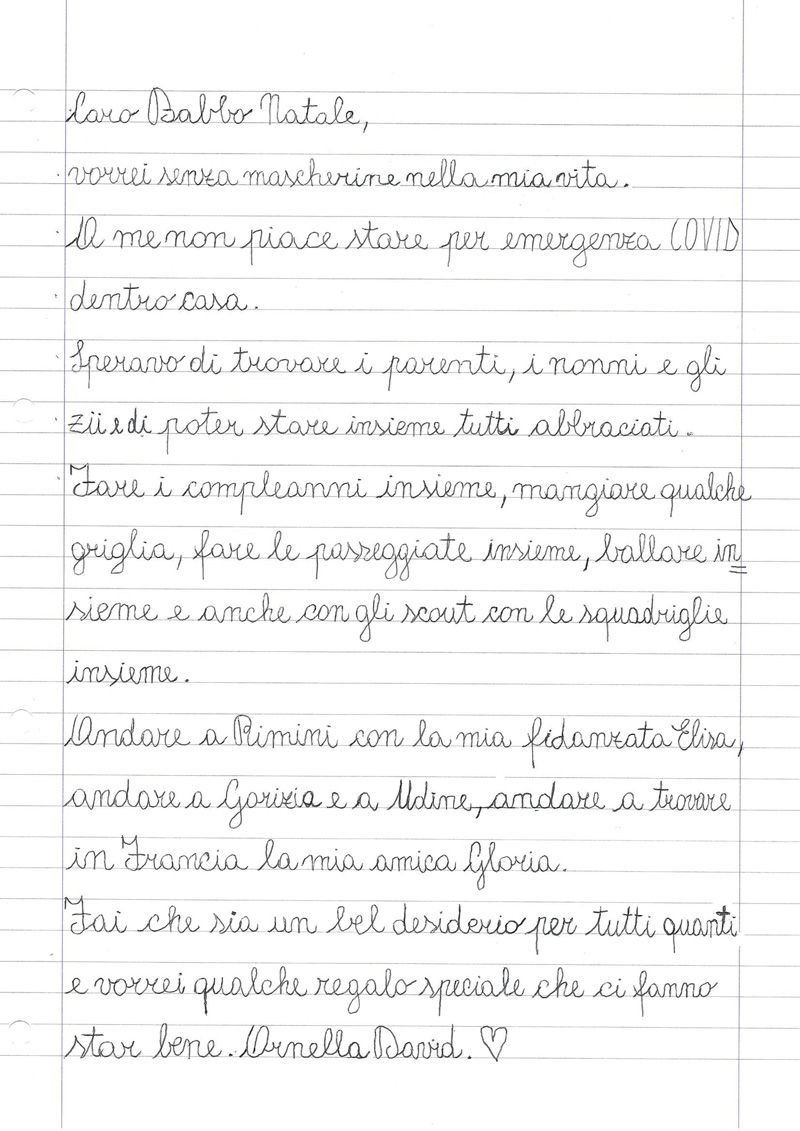 Caro Babbo Natale,
vorrei senza mascherine nella mia vita.
A me non piace stare per emergenza COVID
dentro casa.
Speravo di trovare i parenti, i nonni e gli
zii e di poter stare insieme tutti abbraciati.
Fare i compleanni insieme, mangiare qualche
griglia, fare le passeggiate insieme, ballare in=
sieme e anche con gli scout con le squadriglie
insieme.
Andare a Rimini con la mia fidanzata Elisa,
andare a Gorizia e a Udine, andare a trovare
in Francia la mia amica Gloria.
Fai che sia un bel desiderio per tutti quanti
e vorrei qualche regalo speciale che ci fanno
star bene. Ornella David. ♡